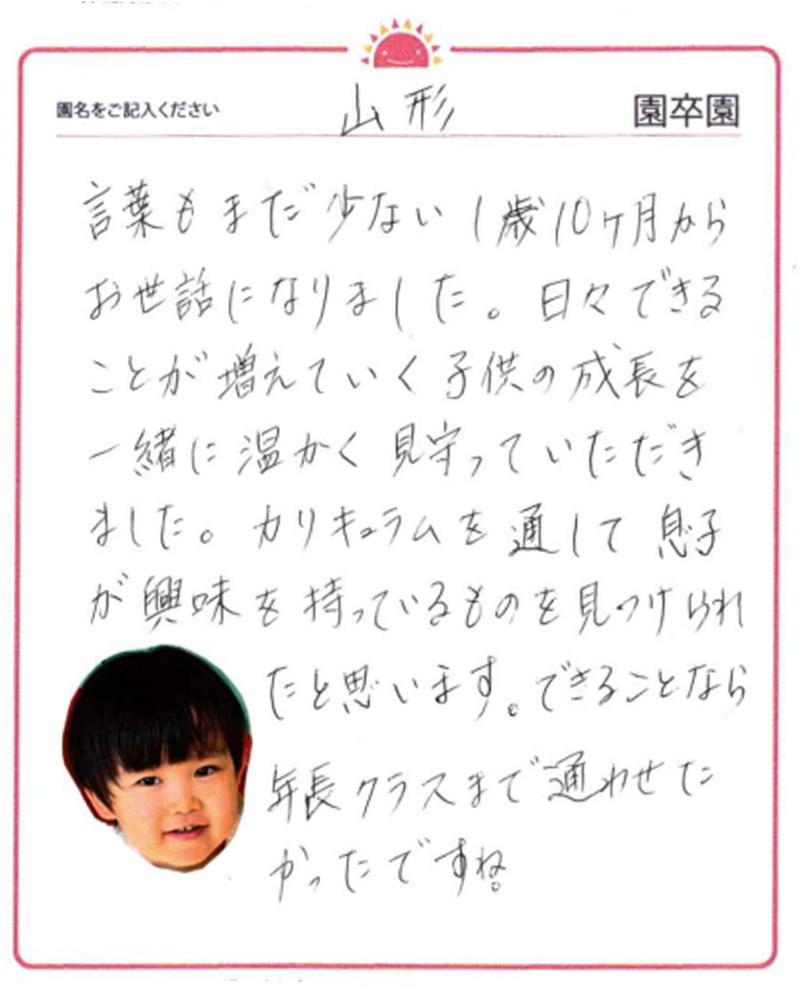 園名をご記入ください 山形 園卒園
言葉もまだ少ない1歳10ヶ月から
お世話になりました。日々できる
ことが増えていく子供の成長を
一緒に温かく見守っていただき
ました。カリキュラムを通して息子
が興味を持っているものを見つけられ
たと思います。できることなら
年長クラスまで通わせた
かったですね。